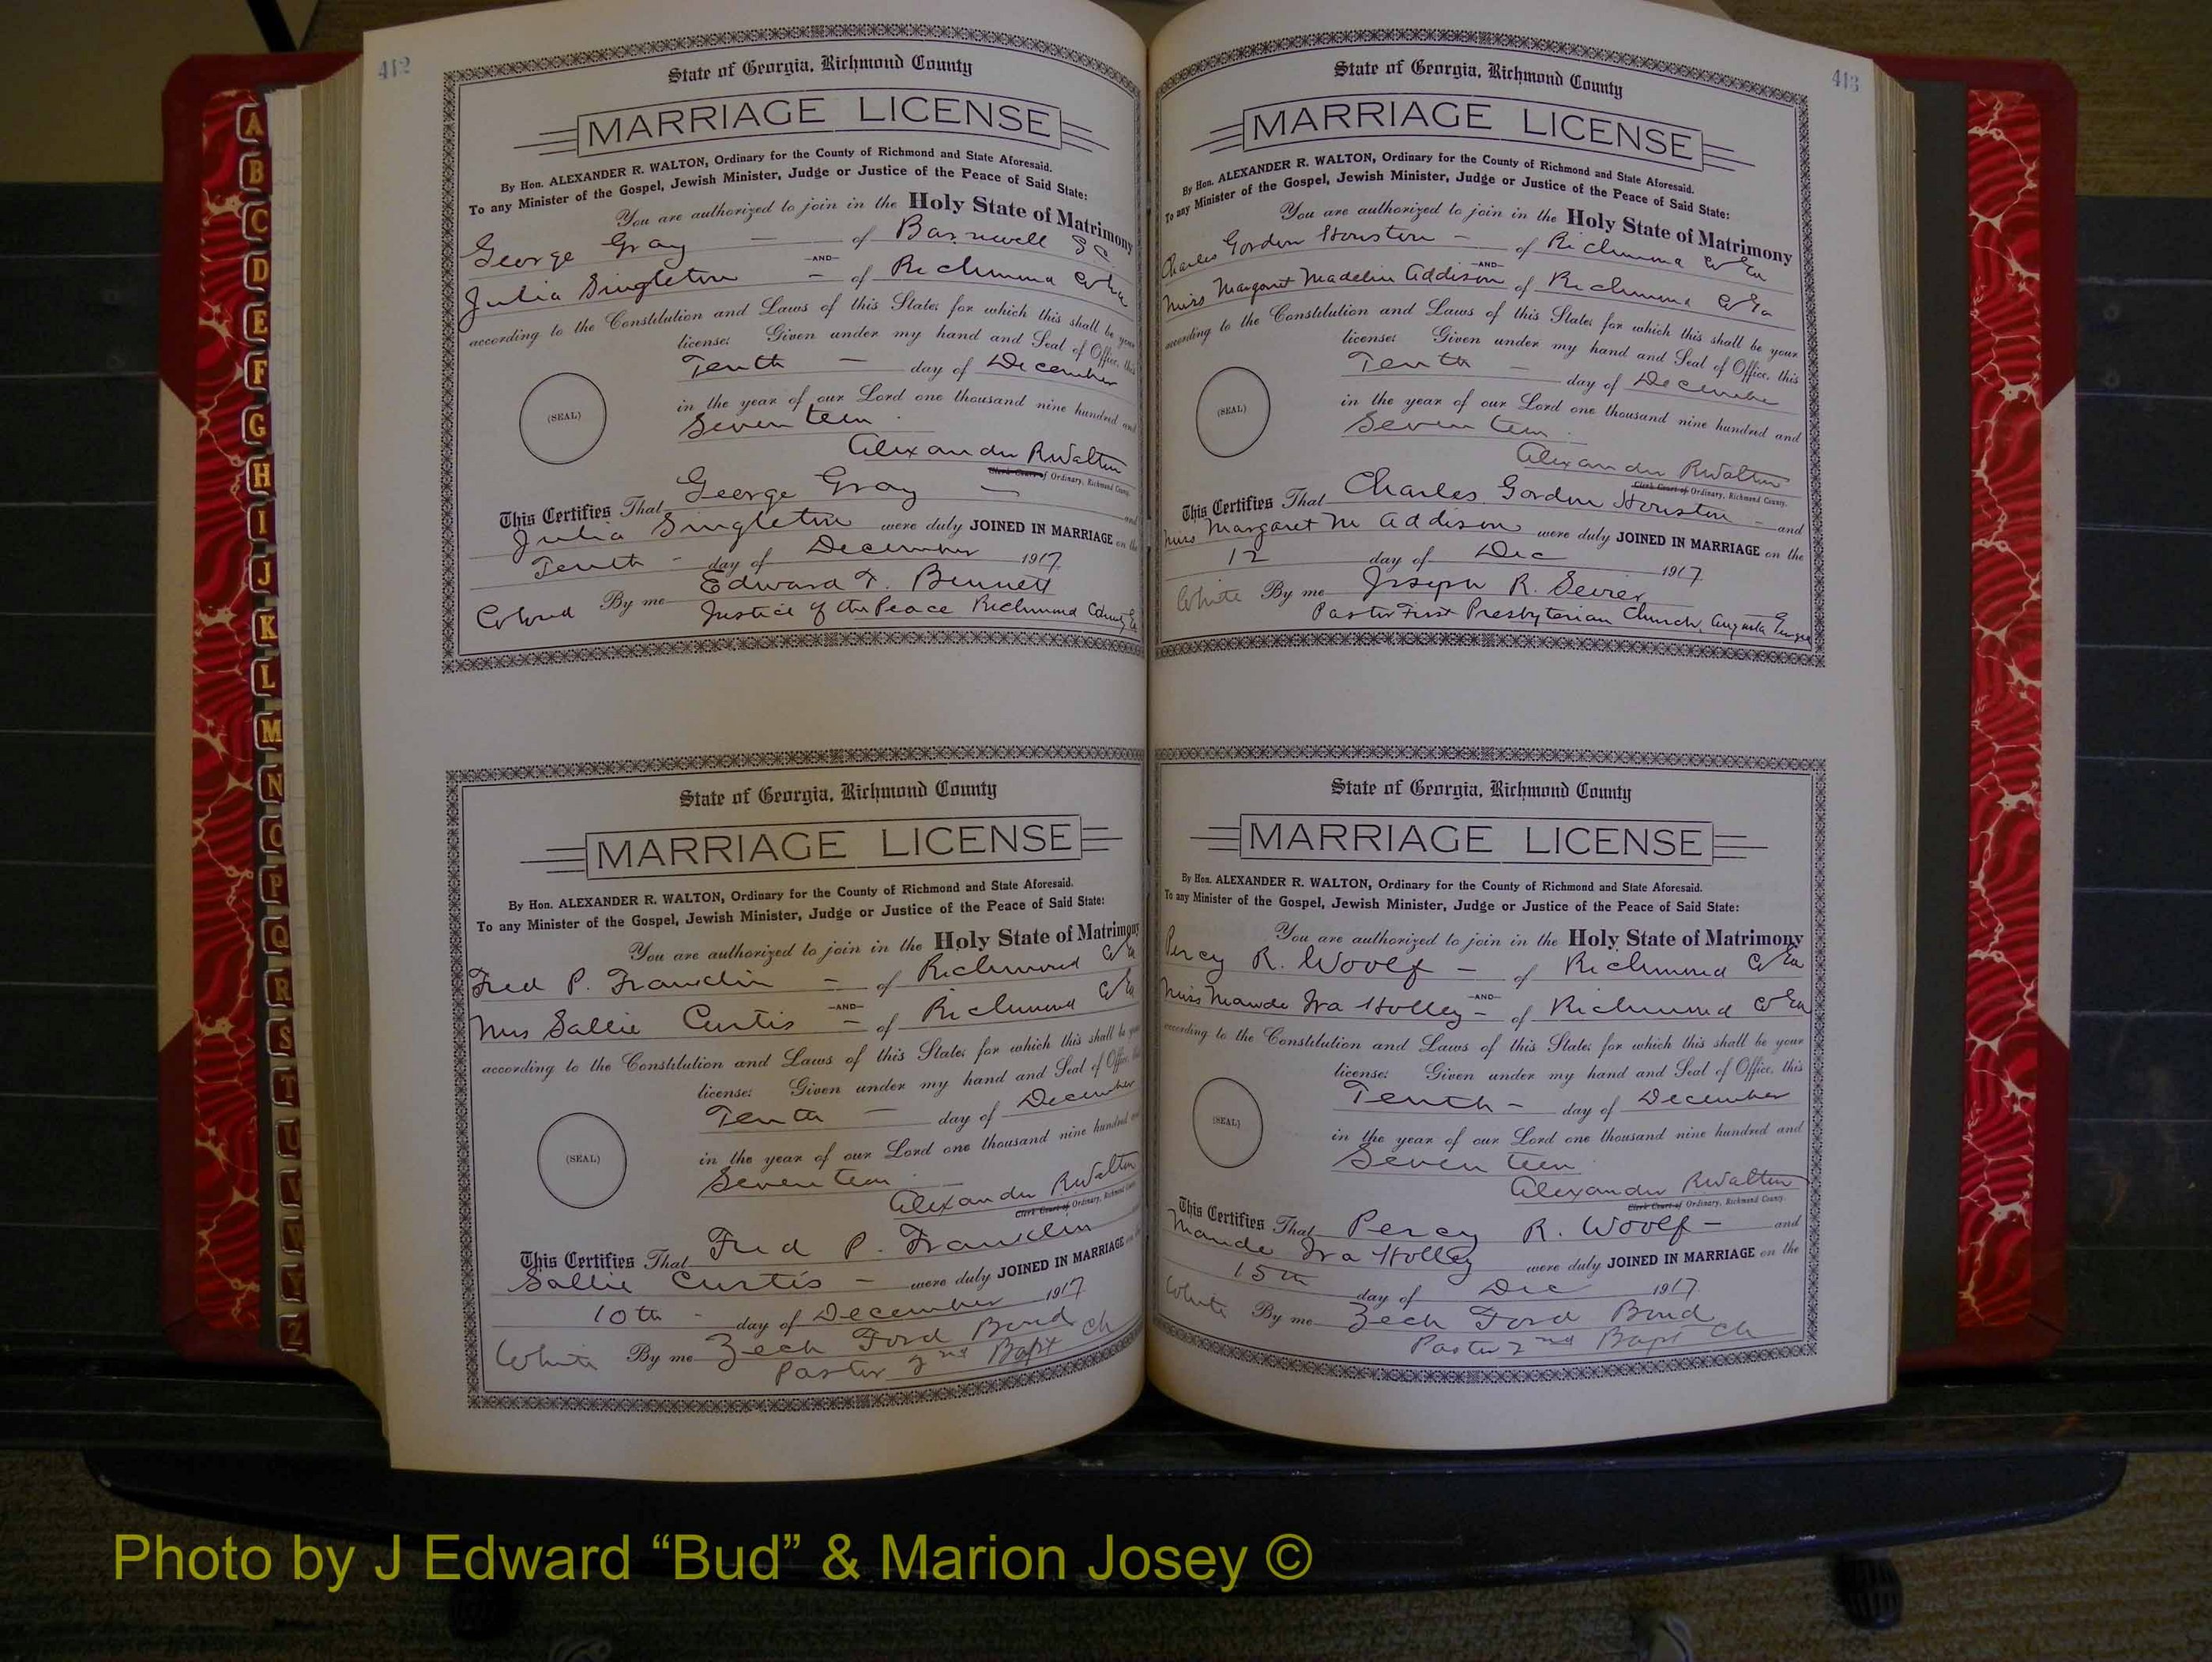 412
State of Georgia, Richmond County
MARRIAGE LICENSE
By Hon. ALEXANDER R. WALTON, Ordinary for the County of Richmond and State Aforesaid.
To any Minister of the Gospel, Jewish Minister, Judge or Justice of the Peace of Said State:
You are authorized to join in the Holy State of Matrimony
George Gray — of Barnwell SC
-AND-
Julia Singleton - of Richmond Co Ga
according to the Constitution and Laws of this State; for which this shall be your
license: Given under my hand and Seal of Office, this
Tenth — day of December
(SEAL)
in the year of our Lord one thousand nine hundred and
Seventeen
Alexander R Walton
Clerk Court of Ordinary, Richmond County.
This Certifies That George Gray — and
Julia Singleton were duly JOINED IN MARRIAGE on the
Tenth - day of December 1917.
Colored By me Edward F. Bennett
Justice of the Peace Richmond County Ga
State of Georgia, Richmond County
MARRIAGE LICENSE
By Hon. ALEXANDER R. WALTON, Ordinary for the County of Richmond and State Aforesaid.
To any Minister of the Gospel, Jewish Minister, Judge or Justice of the Peace of Said State:
You are authorized to join in the Holy State of Matrimony
Fred P. Franklin - of Richmond Co Ga
-AND-
Mrs Sallie Curtis - of Richmond Co Ga
according to the Constitution and Laws of this State; for which this shall be your
license: Given under my hand and Seal of Office, this
Tenth — day of December
(SEAL)
in the year of our Lord one thousand nine hundred and
Seventeen
Alexander R Walton
Clerk Court of Ordinary, Richmond County.
This Certifies That Fred P. Franklin
Sallie Curtis - were duly JOINED IN MARRIAGE on the
10th - day of December 1917.
White By me Zech Ford Bond
Pastor 2nd Bapt Ch
413
State of Georgia, Richmond County
MARRIAGE LICENSE
By Hon. ALEXANDER R. WALTON, Ordinary for the County of Richmond and State Aforesaid.
To any Minister of the Gospel, Jewish Minister, Judge or Justice of the Peace of Said State:
You are authorized to join in the Holy State of Matrimony
Charles Gordon Houston - of Richmond Co Ga
-AND-
Miss Margaret Madelin Addison of Richmond Co Ga
according to the Constitution and Laws of this State; for which this shall be your
license: Given under my hand and Seal of Office, this
Tenth - day of December
(SEAL)
in the year of our Lord one thousand nine hundred and
Seventeen
Alexander R Walton
Clerk Court of Ordinary, Richmond County.
This Certifies That Charles Gordon Houston - and
Miss Margaret M Addison were duly JOINED IN MARRIAGE on the
12 day of Dec 1917.
White By me Joseph R. Sevier
Pastor First Presbyterian Church, Augusta Georgia
State of Georgia, Richmond County
MARRIAGE LICENSE
By Hon. ALEXANDER R. WALTON, Ordinary for the County of Richmond and State Aforesaid.
To any Minister of the Gospel, Jewish Minister, Judge or Justice of the Peace of Said State:
You are authorized to join in the Holy State of Matrimony
Percy R. Woolf - of Richmond Co Ga
-AND-
Miss Maude Ira Holley - of Richmond Co Ga
according to the Constitution and Laws of this State; for which this shall be your
license: Given under my hand and Seal of Office, this
Tenth - day of December
(SEAL)
in the year of our Lord one thousand nine hundred and
Seventeen
Alexander R Walton
Clerk Court of Ordinary, Richmond County.
This Certifies That Percy R. Woolf - and
Maude Ira Holley were duly JOINED IN MARRIAGE on the
15th day of Dec 1917.
White By me Zech Ford Bond
Pastor 2nd Bapt Ch
A
B
C
D
E
F
G
H
I
J
K
L
M
N
O
P
Q
R
S
T
U
V
W
Y
Z
Photo by J Edward “Bud” & Marion Josey ©